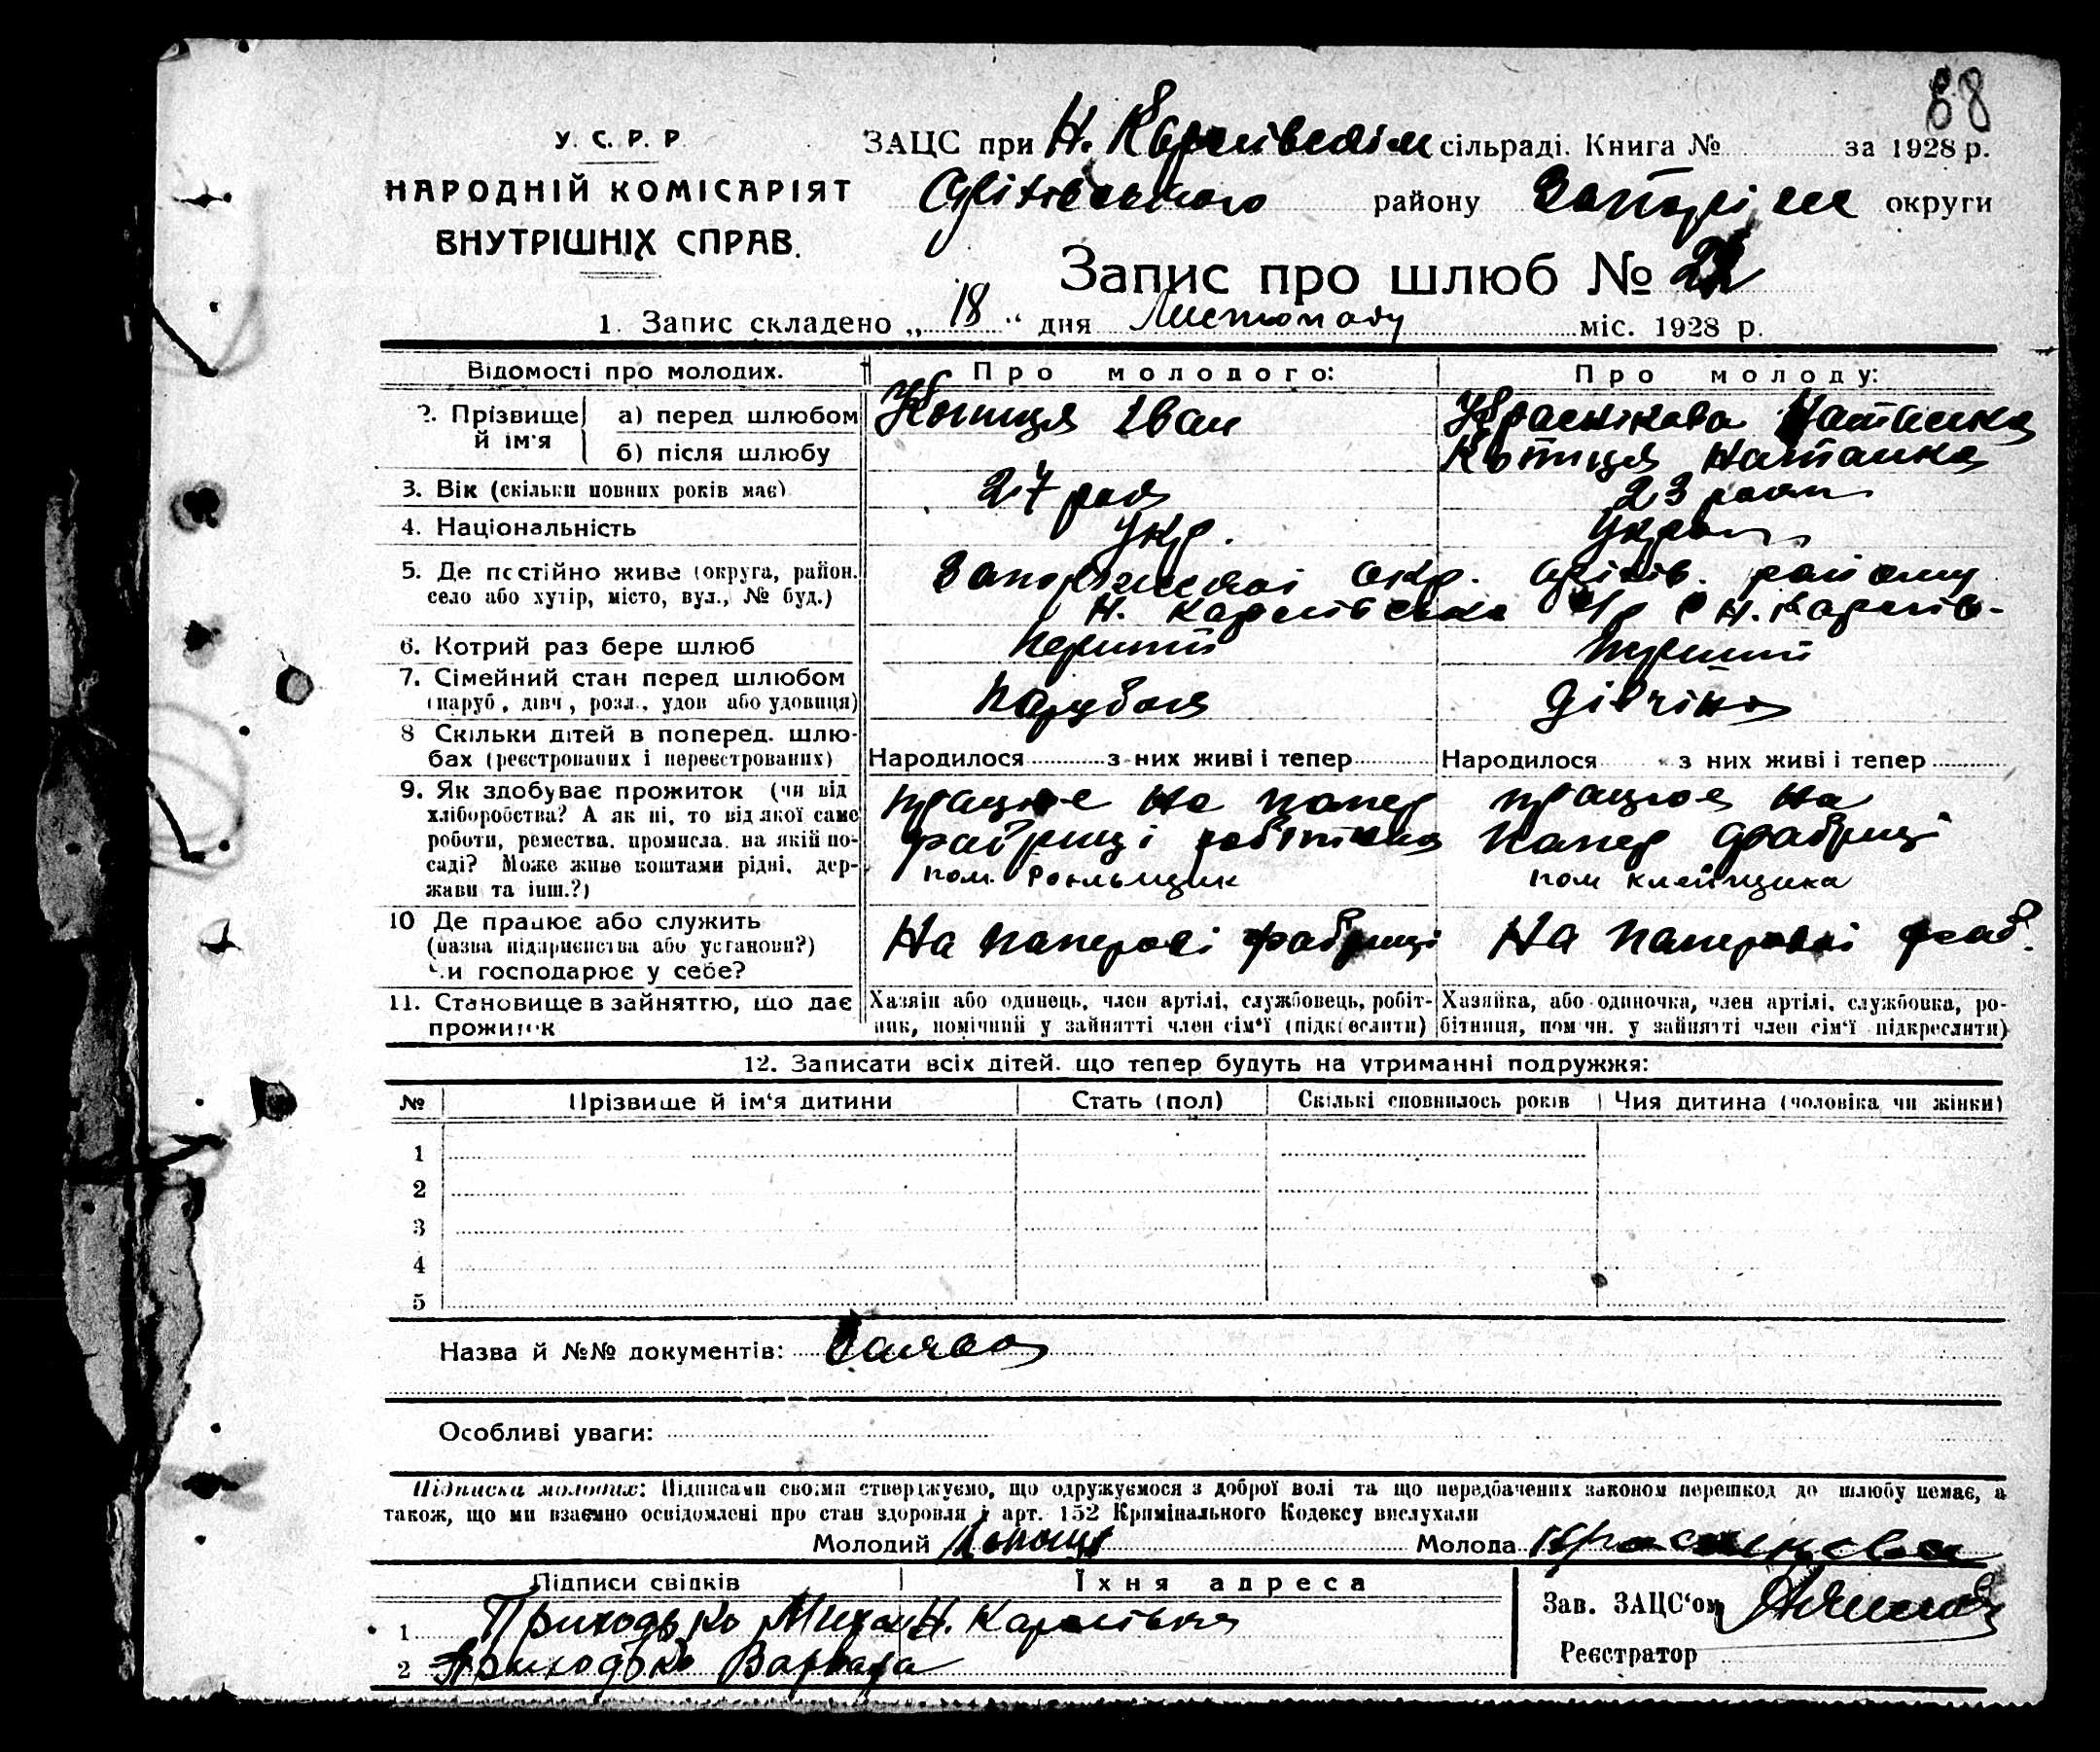 88
У. С. Р. Р.
НАРОДНІЙ КОМІСАРІЯТ
ВНУТРІШНІХ СПРАВ.
ЗАЦС при Н. Карлівській сільраді. Книга № за 1928 р.
району Запоріж округи
Запис про шлюб № 22
1. Запис складено „ 18 “ дня Листопаду міс. 1928 р.
Відомості про молодих. Про молодого: Про молоду:
2. Прізвище й ім'я
а) перед шлюбом Копиця Іван Краснікова Наталка
б) після шлюбу Копиця Наталка
3. Вік (скільки повних років має) 27 рок 23 роки
4. Національність Укр.
5. Де постійно живе (округа, район, Запоріжської окр. району
село або хутір, місто, вул., № буд.) Н. Карлівська Н. Карлів-
6. Котрий раз бере шлюб перший перший
7. Сімейний стан перед шлюбом Парубок Дівчина
(паруб., дівч., розл., удов. або удовиця)
8 Скільки дітей в поперед. шлю-
бах (реєстрованих і нереєстрованих) Народилося з них живі і тепер Народилося з них живі і тепер
9. Як здобуває прожиток (чи від працює на папер працює на
хліборобства? А як ні, то від якої саме
роботи, ремества, промисла, на якій по- фабриці папер фабриці
саді? Може живе коштами рідні, дер- пом. Рольщик пом клейщика
жави та інш.?)
10 Де працює або служить На паперові фабриці На паперові фаб.
(назва підприємства або установи?)
Чи господарює у себе?
11. Становище в зайняттю, що дає Хазяїн або одинець, член артілі, службовець, робіт- Хазяйка, або одиночка, член артілі, службовка, ро-
прожиток ник, помічний у зайнятті член сім'ї (підкреслити) бітниця, помічн. у зайнятті член сім'ї підкреслити)
12. Записати всіх дітей, що тепер будуть на утриманні подружжя:
№ Прізвище й ім'я дитини Стать (пол) Скількі сповнилось років Чия дитина (чоловіка чи жінки)
1
2
3
4
5
Назва й №№ документів:
Особливі уваги:
Підписка молодих: Підписами своїми стверджуємо, що одружуємося з доброї волі та що передбачених законом перешкод до шлюбу немає, а
також, що ми взаємно освідомлені про стан здоровля і арт. 152 Кримінального Кодексу вислухали
Молодий Копиця Молода Краснікова
Підписи свідків Їхня адреса
1 Приходько Миха Н. Карлівка
2 Приходько Варвара
Зав. ЗАЦС'ом
Реєстратор